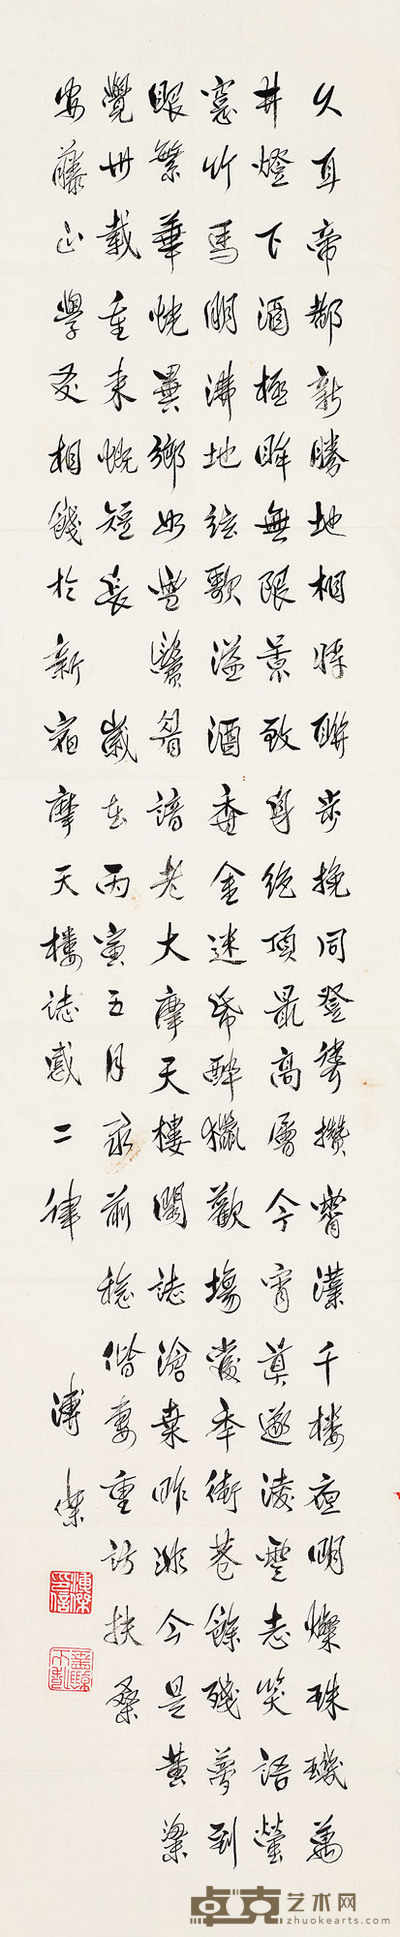 久耳帝都新勝地相將聯步挽同登聳攢霄漢千樓夜明燦珠璣萬
井燈下酒極眸無限景致身絕頂最高層今宵真遂淩雲志笑語螢
窗竹馬朋沸地弦歌溢酒香金迷紙醉獵歡場當年街巷餘殘夢到
眼繁華恍異鄉如雪鬢眉諳老大摩天樓閣誌滄桑昨非今是黃粱
覺卅載重來慨短長 歲在丙寅五月承前稔偕妻重訪扶桑
安藤學友相餞於新宿摩天樓誌感二律 溥傑
卓克艺术网
zhuokearts.com